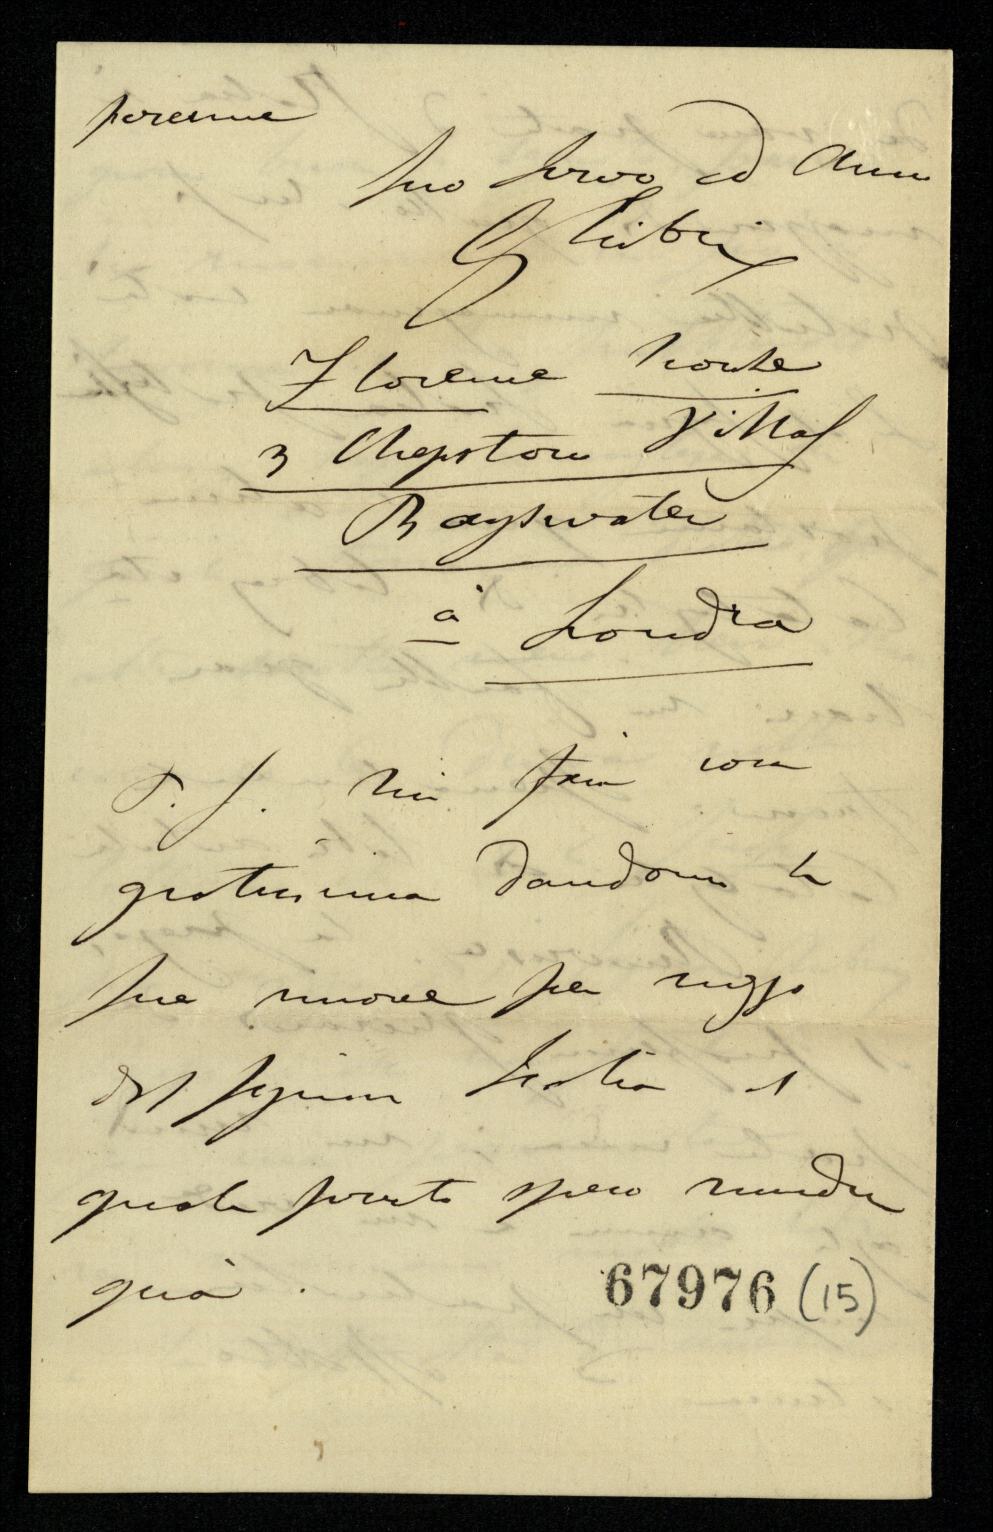 perenne
suo servo ed Amico
G Libri
Florence House
3 Chepstow Villas
Bayswater
à Londra
P. S. Mi farà cosa
gratissima dandomi le
sue nuove per mezzo
del signor Scotia il
quale presto spero vendrà
quà.
67976 (15)